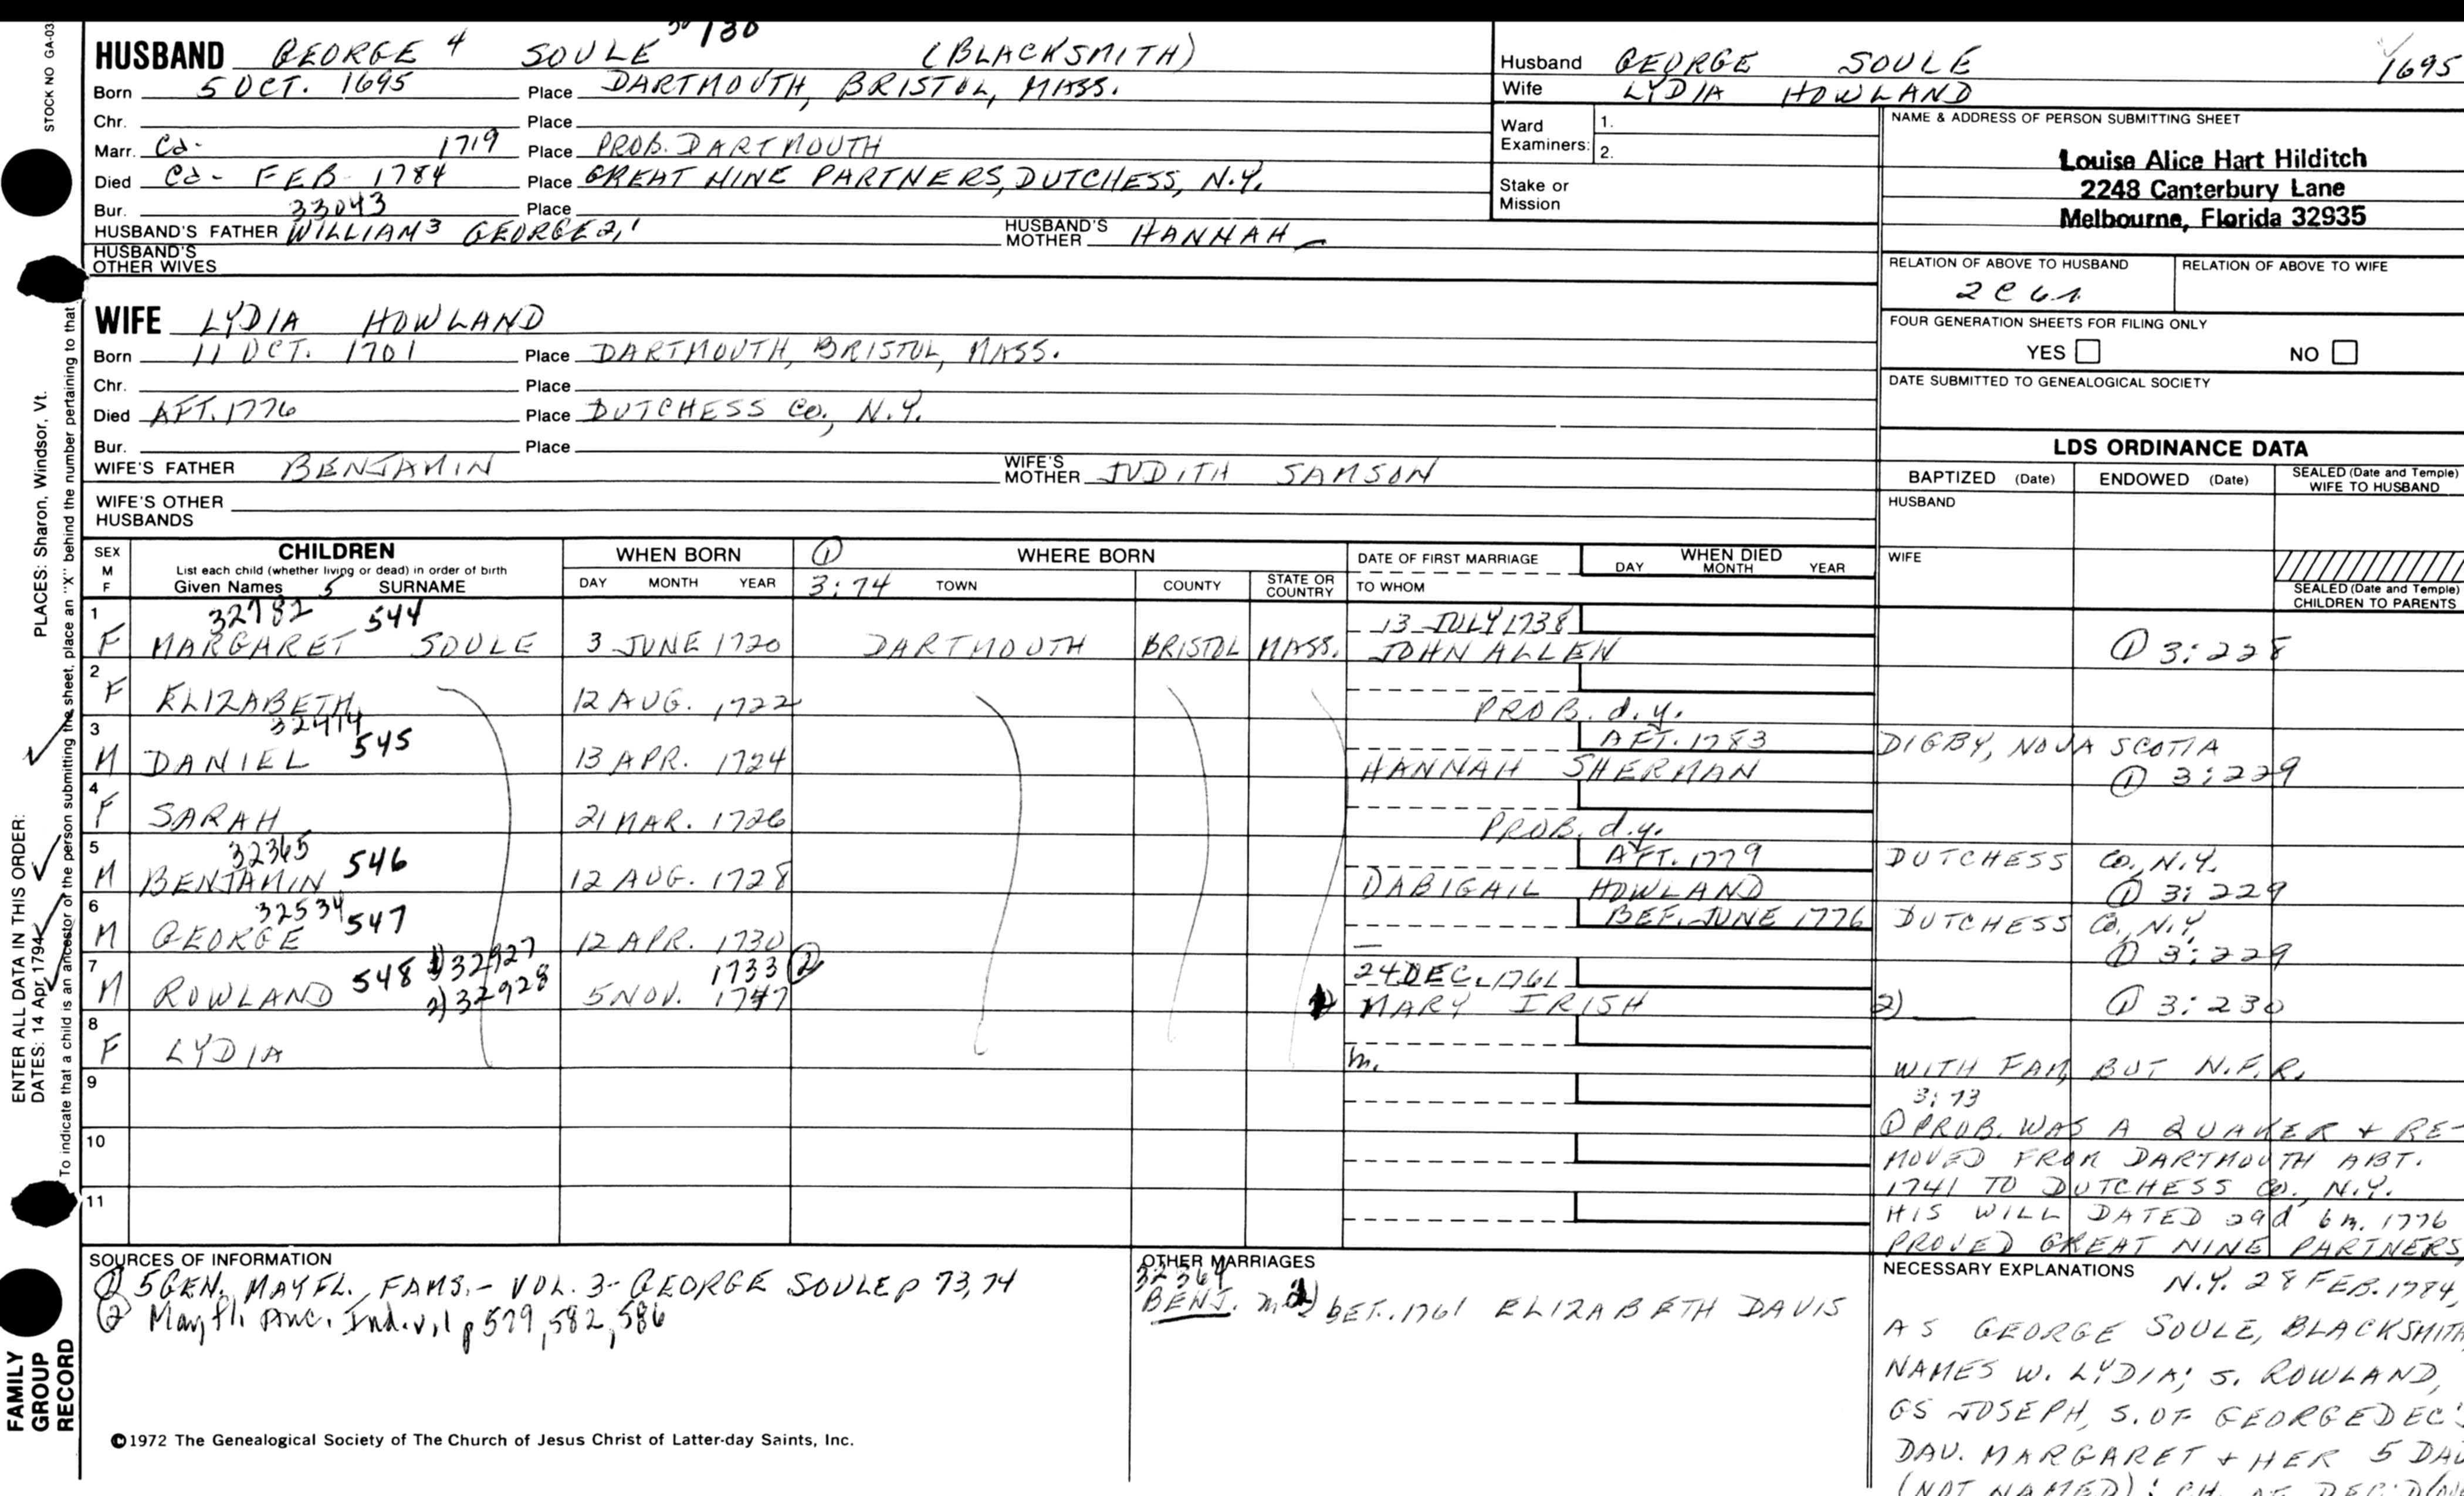 HUSBAND GEORGE 4 SOULE 130 (BLACKSMITH)
Born 5 OCT. 1695 Place DARTMOUTH, BRISTOL, MASS.
Chr. Place
Marr. Ca- 1719 Place PROB. DARTMOUTH
Died Ca- FEB 1784 Place GREAT NINE PARTNERS, DUTCHESS, N.Y.
Bur. Place
33043
HUSBAND'S FATHER WILLIAM 3 GEORGE 2,1 HUSBAND'S MOTHER HANNAH
HUSBAND'S OTHER WIVES
WIFE LYDIA HOWLAND
Born 11 OCT. 1701 Place DARTMOUTH, BRISTOL, MASS.
Chr. Place
Died AFT. 1776 Place DUTCHESS Co., N.Y.
Bur. Place
WIFE'S FATHER BENJAMIN WIFE'S MOTHER JUDITH SAMSON
WIFE'S OTHER HUSBANDS
Husband GEORGE SOULE 1695
Wife LYDIA HOWLAND
Ward Examiners: 1.
2.
Stake or Mission
NAME & ADDRESS OF PERSON SUBMITTING SHEET
Louise Alice Hart Hilditch
2248 Canterbury Lane
Melbourne, Florida 32935
RELATION OF ABOVE TO HUSBAND RELATION OF ABOVE TO WIFE
2C
FOUR GENERATION SHEETS FOR FILING ONLY
YES NO
DATE SUBMITTED TO GENEALOGICAL SOCIETY
LDS ORDINANCE DATA
BAPTIZED (Date) ENDOWED (Date) SEALED (Date and Temple) WIFE TO HUSBAND
HUSBAND
WIFE
SEALED (Date and Temple) CHILDREN TO PARENTS
SEX M F CHILDREN WHEN BORN ① WHERE BORN DATE OF FIRST MARRIAGE WHEN DIED
List each child (whether living or dead) in order of birth
Given Names 5 SURNAME DAY MONTH YEAR 3:74 TOWN COUNTY STATE OR COUNTRY TO WHOM DAY MONTH YEAR
1 32782 544 13 JULY 1738
F MARGARET SOULE 3 JUNE 1720 DARTMOUTH BRISTOL MASS. JOHN ALLEN ① 3:228
2
F ELIZABETH 12 AUG. 1722 PROB. d.y.
3 32414 545 AFT. 1783 DIGBY, NOVA SCOTIA
M DANIEL 13 APR. 1724 HANNAH SHERMAN ① 3:229
4
F SARAH 21 MAR. 1726 PROB. d.y.
5 32365 546 AFT. 1779 DUTCHESS Co., N.Y.
M BENJAMIN 12 AUG. 1728 ABIGAIL HOWLAND ① 3:229
6 32534 547 BEF. JUNE 1776 DUTCHESS Co., N.Y.
M GEORGE 12 APR. 1730 — ① 3:229
7 548 1) 32927 1733 ② 24 DEC. 1761
M ROWLAND 2) 32928 5 NOV. 1747 MARY IRISH 2) ① 3:230
8
F LYDIA m. WITH FAM, BUT N.F.R.
9
10
11
3:73
① PROB. WAS A QUAKER + RE-
MOVED FROM DARTMOUTH ABT.
1741 TO DUTCHESS Co., N.Y.
HIS WILL DATED 29d 6m. 1776
PROVED GREAT NINE PARTNERS,
NECESSARY EXPLANATIONS N.Y. 28 FEB. 1784,
AS GEORGE SOULE, BLACKSMITH
NAMES W. LYDIA; S. ROWLAND,
GS JOSEPH, S. OF GEORGE DEC'
DAU. MARGARET + HER 5 DAU
(NOT NAMED); CH. OF DEC'D
SOURCES OF INFORMATION
① 5 GEN. MAYFL. FAMS.- VOL. 3- GEORGE SOULE p 73, 74
② Mayfl. Anc. Ind. v. 1 p 579, 582, 586
OTHER MARRIAGES
32364
BENJ. m. 2) BET. 1761 ELIZABETH DAVIS
©1972 The Genealogical Society of The Church of Jesus Christ of Latter-day Saints, Inc.
STOCK NO GA-03
PLACES: Sharon, Windsor, Vt.
ENTER ALL DATA IN THIS ORDER:
DATES: 14 Apr 1794
To indicate that a child is an ancestor of the person submitting the sheet, place an "X" behind the number pertaining to that
FAMILY GROUP RECORD